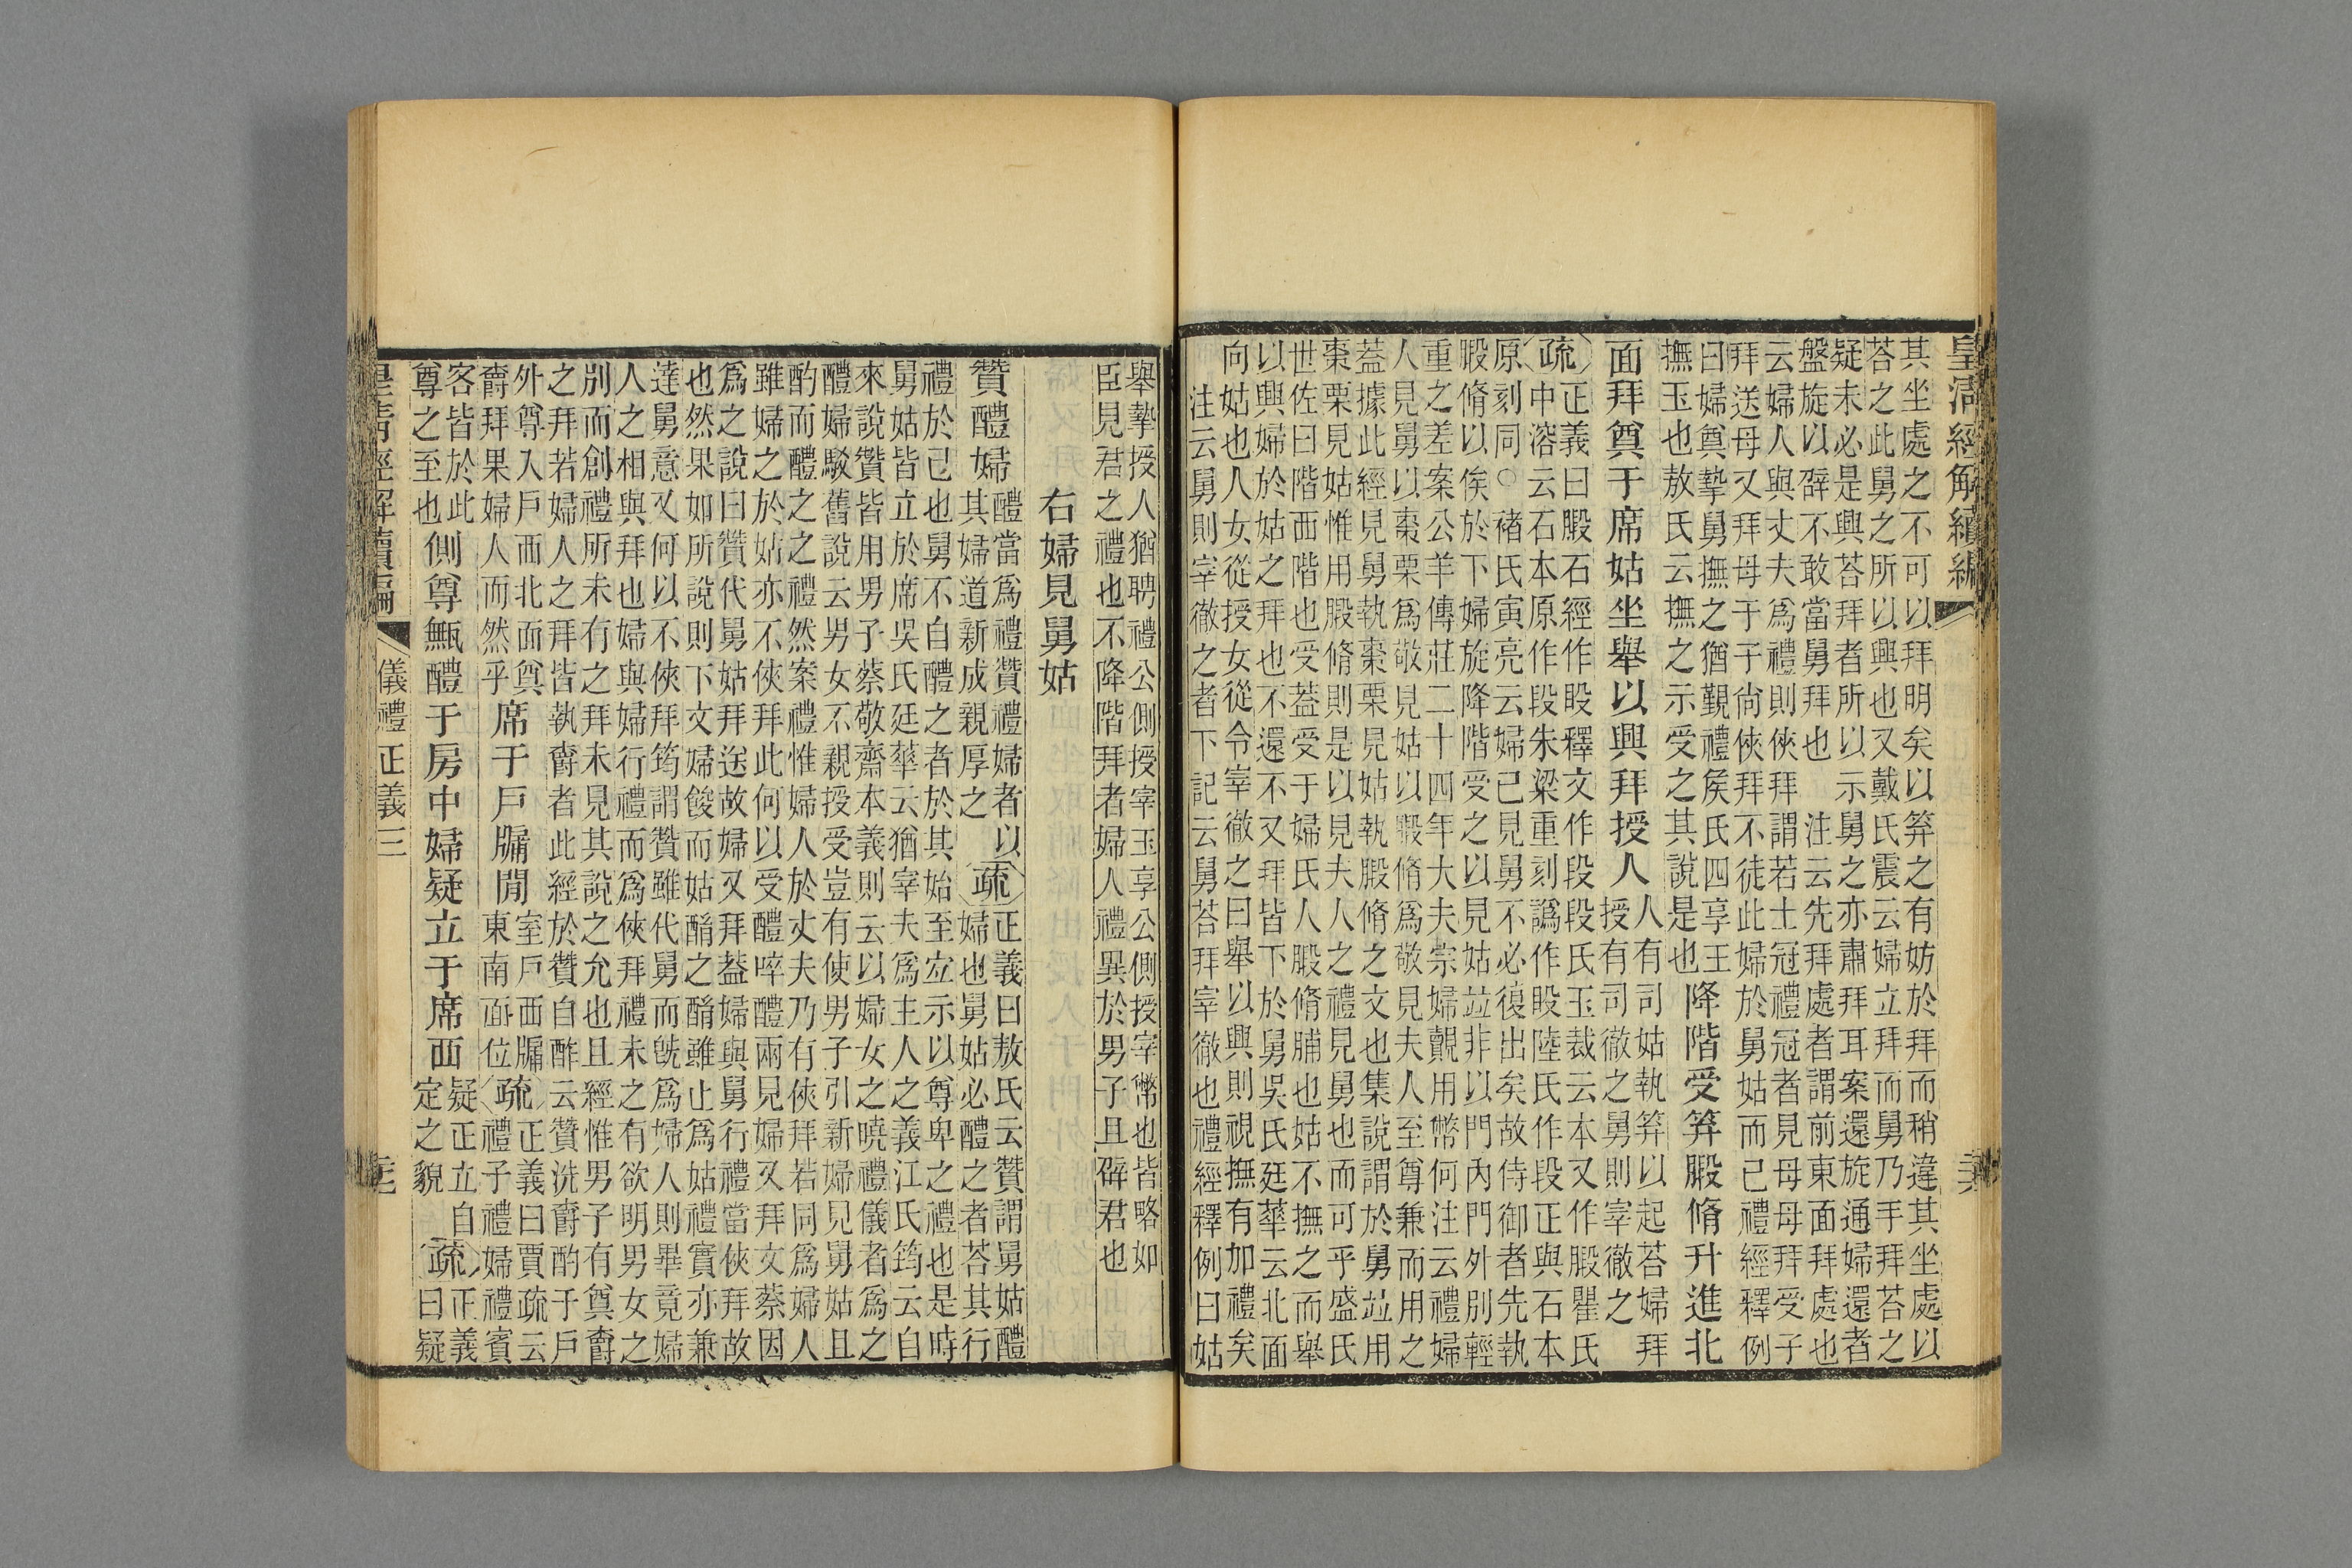 皇清經解續編
其坐處之不可以拜明矣以笲之有妨於拜而稍違其坐處以
荅之此舅之所以興也又戴氏震云婦立拜而舅乃手拜荅之
疑未必是興荅拜者所以示舅之亦肅拜耳案還旋通婦還者
盤旋以辟不敢當舅拜也　注云先拜處者謂前東面拜處也
云婦人與丈夫爲禮則俠拜　謂若士冠禮冠者見母母拜受子
拜送母又拜母于子尙俠拜不徒此婦於舅姑而已禮經釋例
曰婦奠摯舅撫之猶觀禮矦氏四享王
撫玉也敖氏云撫之示受之其說是也
降階受笲腶脩升進北
面拜奠于席姑坐舉以興拜授人
人有司姑執笲以起荅婦拜
授有司徹之舅則宰徹之
疏
正義曰腶石經作股釋文作段段氏玉裁云本又作腶瞿氏
中溶云石本原作段朱梁重刻譌作股陸氏作段正與石本
原刻同○褚氏寅亮云婦已見舅不必復出矣故侍御者先執
腶脩以俟於下婦旋降階受之以見姑竝非以門內門外別輕
重之差案公羊傳莊二十四年大夫宗婦覿用幣何注云禮婦
人見舅以棗栗爲敬見姑以腶脩爲敬見夫人至尊兼而用之
葢據此經見舅執棗栗見姑執腶脩之文也集說謂於舅竝用
棗栗見姑惟用腶脩則是以見夫人之禮見舅也而可乎盛氏
世佐曰階西階也受葢受于婦氏人腶脩脯也姑不撫之而舉
以興婦於姑之拜也不還不又拜皆下於舅吳氏廷華云北面
向姑也人女從授女從令宰徹之曰舉以興則視撫有加禮矣
注云舅則宰徹之者下記云舅荅拜宰徹也禮經釋例曰姑
舉摯授人猶聘禮公側授宰玉享公側授宰幣也皆略如
臣見君之禮也不降階拜者婦人禮異於男子且辟君也
右婦見舅姑
贊醴婦
醴當爲禮贊禮婦者以
其婦道新成親厚之
疏
正義曰敖氏云贊謂舅姑醴
婦也舅姑必醴之者荅其行
禮於已也舅不自醴之者於其始至宜示以尊卑之禮也是時
舅姑皆立於席吳氏廷華云猶宰夫爲主人之義江氏筠云自
來說贊皆用男子蔡敬齋本義則云以婦女之曉禮儀者爲之
醴婦駁舊說云男女不親授受豈有使男子引新婦見舅姑且
酌而醴之之禮然案禮惟婦人於丈夫乃有俠拜若同爲婦人
雖婦之於姑亦不俠拜此何以受醴啐醴兩見婦又拜文蔡因
爲之說曰贊代舅姑拜送故婦又拜葢婦與舅行禮當俠拜故
也然果如所說則下文婦餕而姑酳之酳雖止爲姑禮實亦兼
達舅意又何以不俠拜筠謂贊雖代舅而旣爲婦人則畢竟婦
人之相與拜也婦與婦行禮而爲俠拜禮未之有欲明男女之
別而創禮所未有之拜未見其說之允也且經惟男子有奠爵
之拜若婦人之拜皆執爵者此經於贊自酢云贊洗爵酌于戶
外尊入戶西北面奠
爵拜果婦人而然乎
席于戶牖閒
室戶西牖
東南面位
疏
正義曰賈疏云
禮子禮婦禮賓
客皆於此
尊之至也
側尊甒醴于房中婦疑立于席西
疑正立自
定之貌
疏
正義
曰疑
皇清經解續編
儀禮正義三